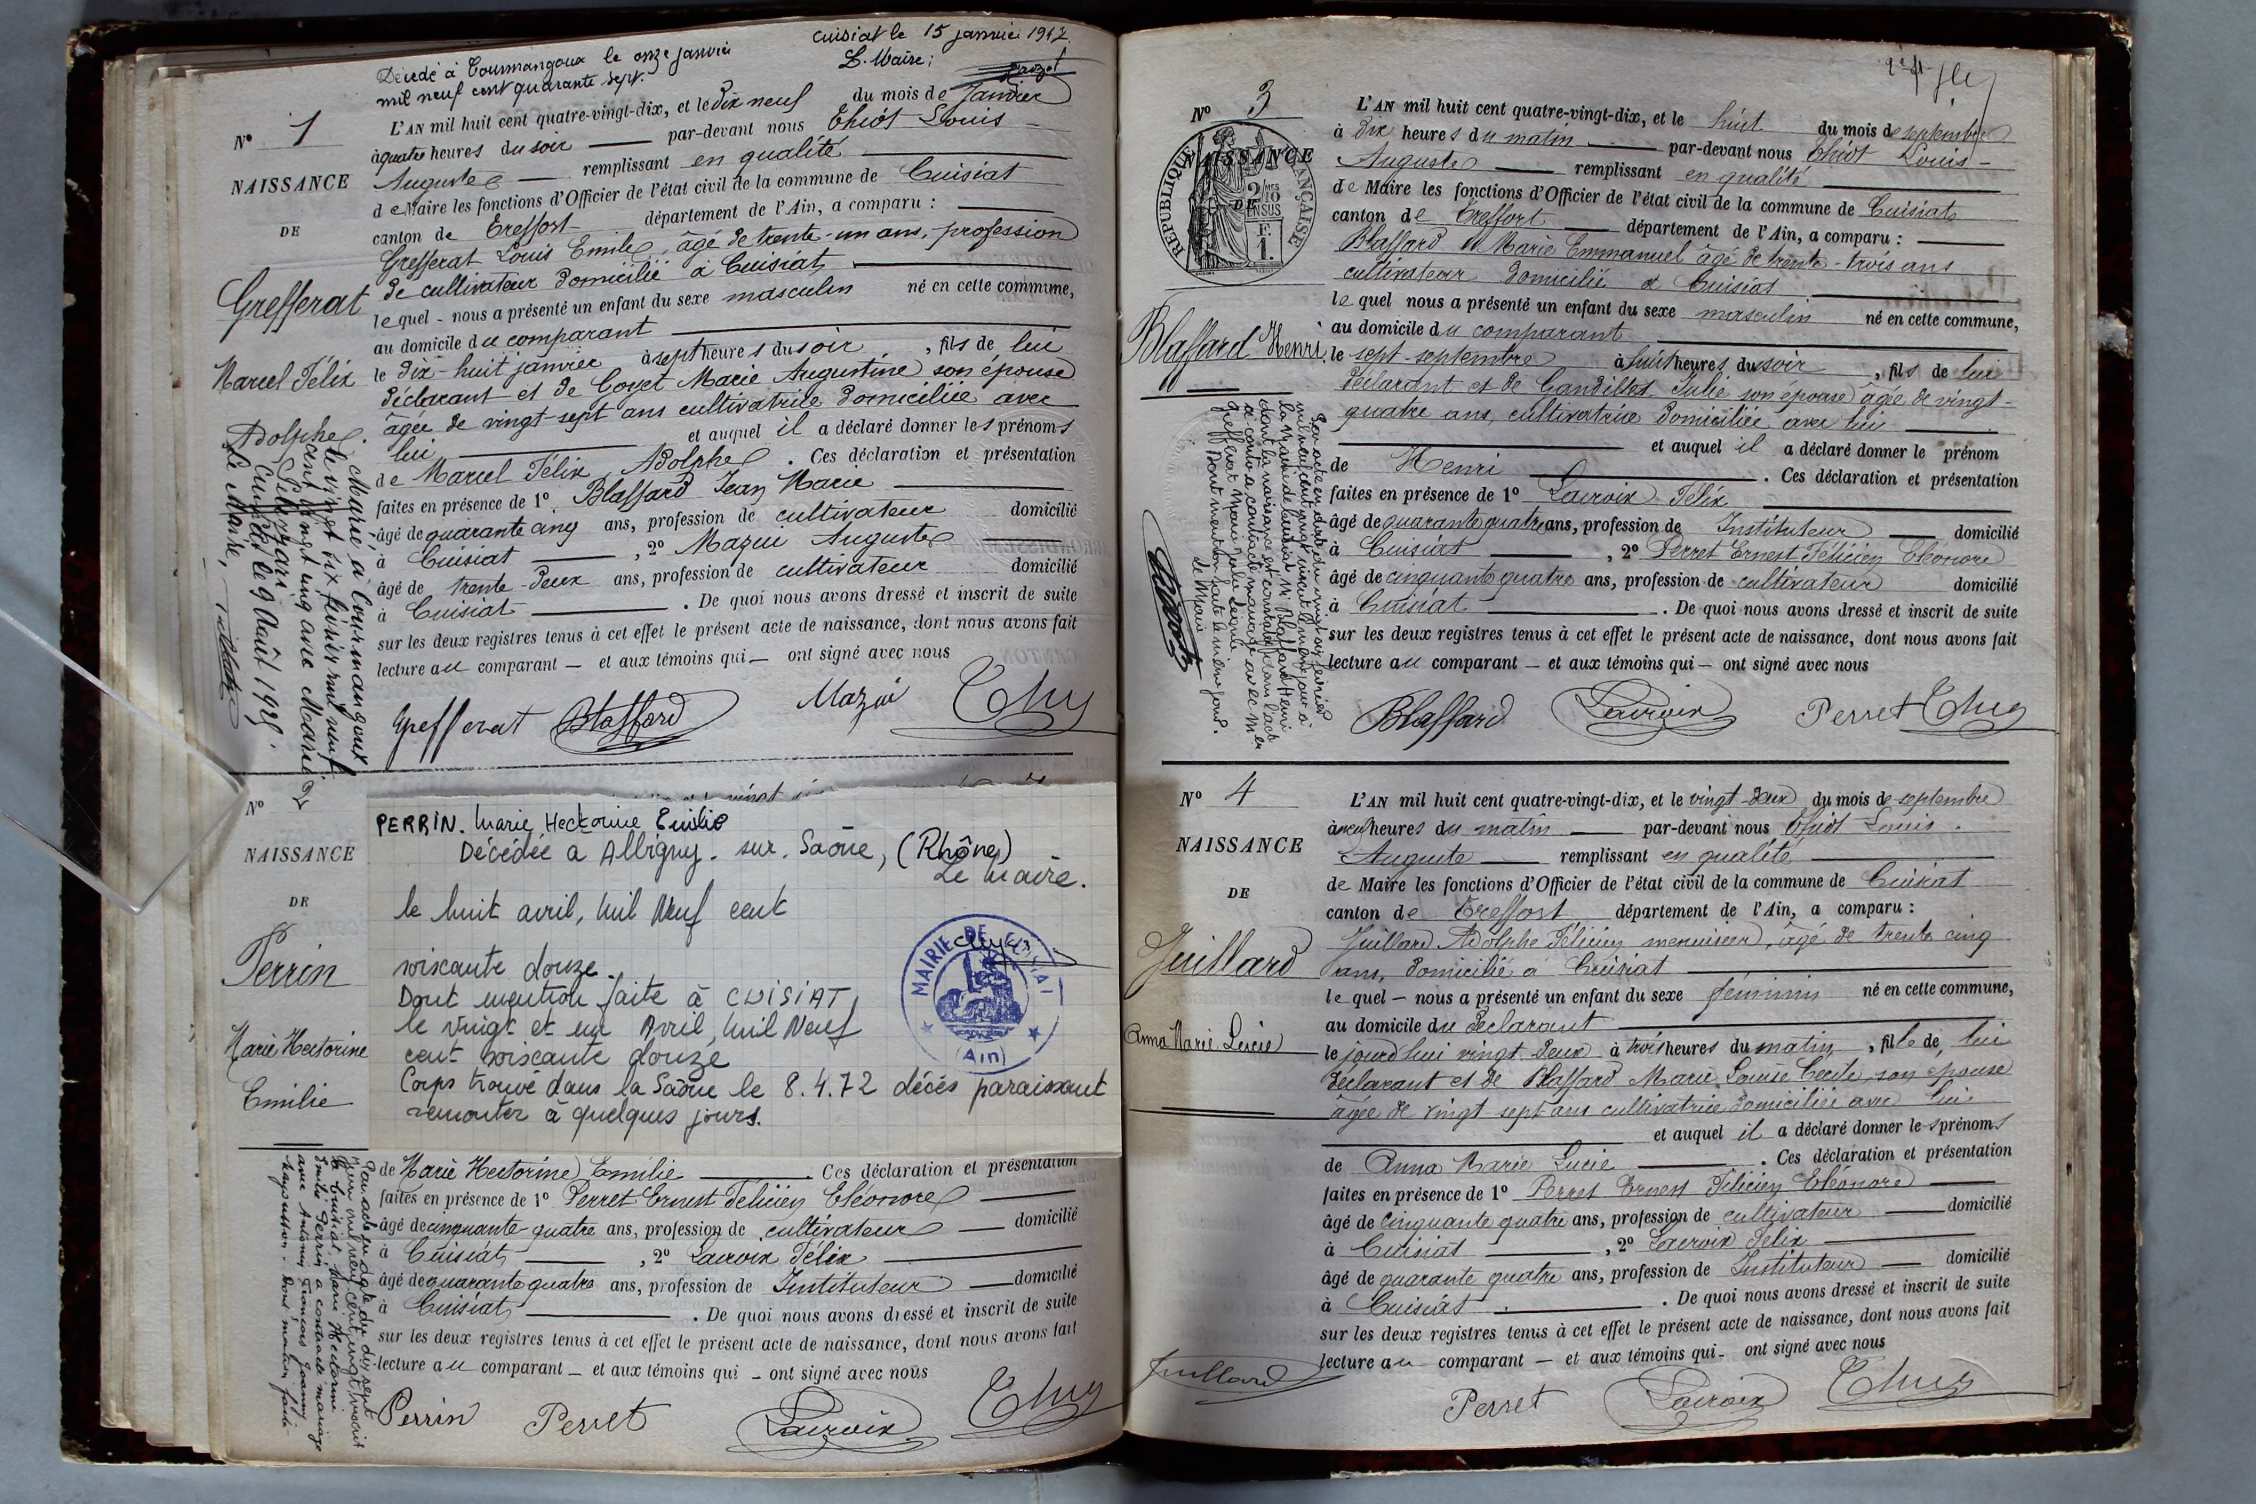 Décédé à Courmangoux le onze janvier
mil neuf cent quarante sept.
Cuisiat le 15 janvier 1947.
Le Maire;
N° 1
NAISSANCE
DE
Grefferat
Marcel Félix
Adolphe.
L'AN mil huit cent quatre-vingt-dix, et le Dix neuf du mois de Janvier
à quatre heures du soir par-devant nous Thiot Louis
Auguste remplissant en qualité
de Maire les fonctions d'Officier de l'état civil de la commune de Cuisiat
canton de Treffort département de l'Ain, a comparu :
Grefferat Louis Emile, âgé de trente-un ans, profession
de cultivateur Domicilié à Cuisiat
lequel - nous a présenté un enfant du sexe masculin né en cette commune,
au domicile du comparant
le dix-huit janvier à sept heures du soir, fils de lui
déclarant et de Goyet Marie Augustine son épouse
âgée de vingt-sept ans cultivatrice Domiciliée avec
lui et auquel il a déclaré donner les prénoms
de Marcel Félix Adolphe. Ces déclaration et présentation
faites en présence de 1° Blaffard Jean Marie
âgé de quarante cinq ans, profession de cultivateur domicilié
à Cuisiat, 2° Mazui Auguste
âgé de trente-Deux ans, profession de cultivateur domicilié
à Cuisiat. De quoi nous avons dressé et inscrit de suite
sur les deux registres tenus à cet effet le présent acte de naissance, dont nous avons fait
lecture au comparant — et aux témoins qui — ont signé avec nous
Grefferat Blaffard Mazui
Marié à Courmangoux
le vingt six février mil neuf
cent vingt cinq avec Marie
Cuisiat le 9 Août 1925.
Le Maire,
N°
NAISSANCE
DE
Perrin
Marie Hectorine
Emilie
PERRIN. Marie Hectorine Emilie
Décédée à Albigny-sur-Saône, (Rhône)
Le Maire.
le huit avril, Mil Neuf cent
soixante douze.
Dont mention faite à CUISIAT
le vingt et un Avril, Mil Neuf
cent soixante douze
Corps trouvé dans la Saône le 8.4.72 décès paraissant
remonter à quelques jours.
MAIRIE DE CUISIAT
(Ain)
de Marie Hectorine Emilie Ces déclaration et présentation
faites en présence de 1° Perret Ernest Félicien Eléonore
âgé de cinquante-quatre ans, profession de cultivateur domicilié
à Cuisiat, 2° Lacroix Félix
âgé de quarante quatre ans, profession de Instituteur domicilié
à Cuisiat. De quoi nous avons dressé et inscrit de suite
sur les deux registres tenus à cet effet le présent acte de naissance, dont nous avons fait
lecture au comparant — et aux témoins qui - ont signé avec nous
Perrin Perret Lacroix
Par acte en date du dix sept
à Cuisiat, Marie Hectorine
Emilie Perrin a contracté mariage
avec Antonin François
Dont mention faite
N° 3
RÉPUBLIQUE FRANÇAISE
NAISSANCE
DE
Blaffard Henri
L'AN mil huit cent quatre-vingt-dix, et le huit du mois de septembre
à dix heures du matin par-devant nous Thiot Louis
Auguste remplissant en qualité
de Maire les fonctions d'Officier de l'état civil de la commune de Cuisiat
canton de Treffort département de l'Ain, a comparu :
Blaffard Marie Emmanuel âgé de trente-trois ans
cultivateur domicilié à Cuisiat
lequel nous a présenté un enfant du sexe masculin né en cette commune,
au domicile du comparant
le sept septembre à huit heures du soir, fils de lui
déclarant et de Gandillet Julie son épouse âgée de vingt-
quatre ans, cultivatrice domiciliée avec lui
et auquel il a déclaré donner le prénom
de Henri. Ces déclaration et présentation
faites en présence de 1° Lacroix Félix
âgé de quarante quatre ans, profession de Instituteur domicilié
à Cuisiat, 2° Perret Ernest Félicien Eléonore
âgé de cinquante quatre ans, profession de cultivateur domicilié
à Cuisiat. De quoi nous avons dressé et inscrit de suite
sur les deux registres tenus à cet effet le présent acte de naissance, dont nous avons fait
lecture au comparant — et aux témoins qui — ont signé avec nous
Blaffard Lacroix Perret
Par acte en date du vingt six février
la Mairie de Cuisiat M. Blaffard Henri
dont la naissance est constatée dans l'acte
ci-contre a contracté mariage avec Melle
Grefferat Marie
Dont mention faite le même jour.
le Maire
N° 4
NAISSANCE
DE
Juillard
Anna Marie Lucie
L'AN mil huit cent quatre-vingt-dix, et le vingt-deux du mois de septembre
à neuf heures du matin par-devant nous Thiot Louis
Auguste remplissant en qualité
de Maire les fonctions d'Officier de l'état civil de la commune de Cuisiat
canton de Treffort département de l'Ain, a comparu :
Juillard Adolphe Félicien menuisier, âgé de trente cinq
ans, domicilié à Cuisiat
lequel — nous a présenté un enfant du sexe féminin né en cette commune,
au domicile du déclarant
le jourd'hui vingt deux à trois heures du matin, fille de lui
déclarant et de Blaffard Marie Louise Cécile son épouse
âgée de vingt sept ans cultivatrice domiciliée avec lui
et auquel il a déclaré donner les prénoms
de Anna Marie Lucie. Ces déclaration et présentation
faites en présence de 1° Perret Ernest Félicien Eléonore
âgé de cinquante quatre ans, profession de cultivateur domicilié
à Cuisiat, 2° Lacroix Félix
âgé de quarante quatre ans, profession de Instituteur domicilié
à Cuisiat. De quoi nous avons dressé et inscrit de suite
sur les deux registres tenus à cet effet le présent acte de naissance, dont nous avons fait
lecture au comparant — et aux témoins qui - ont signé avec nous
Juillard Perret Lacroix